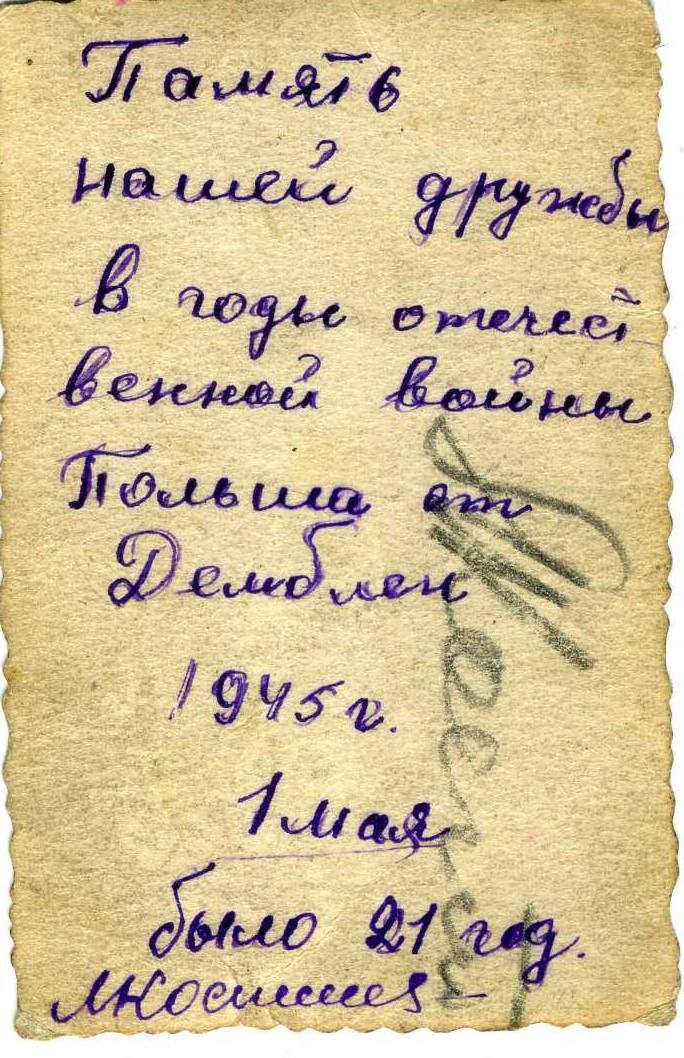 Память
нашей дружбы
в годы отечест
венной войны
Польша ст
Демблен
1945 г.
1 мая
было 21 год.